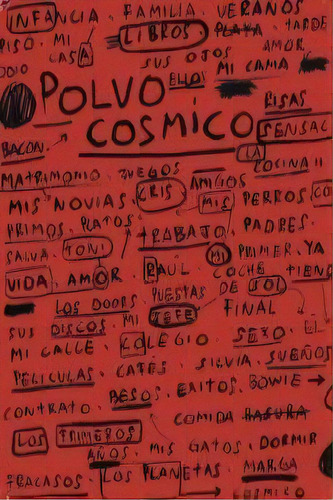 INFANCIA. FAMILIA. VERANOS
PISO. MI LIBROS PLAYA. TARDE
CASA SUS OJOS AMOR
ODIO ELLOS MI CAMA
POLVO RISAS
COSMICO SENSAC
BACON. LA COCINA II
MATRIMONIO. JUEGOS AMIGOS
MIS NOVIAS. CRIS MIS PERROS CO
PRIMOS. PLATOS. TRABAJO. PADRES.
SALVA. TONI MI PRIMER. YA
VIDA. AMOR. RAUL COCHE TIENE
LOS DOORS. PUESTAS DE SOL
SUS DISCOS. MI JEFE FINAL
MI CALLE. COLEGIO. SEXO. EL
PELICULAS. CAFES SILVIA. SUEÑOS
CONTRATO. BESOS. EXITOS. BOWIE →
COMIDA BASURA
LOS PRIMEROS
AÑOS. MIS GATOS. DORMIR
FRACASOS. LOS PLANETAS. MARGA